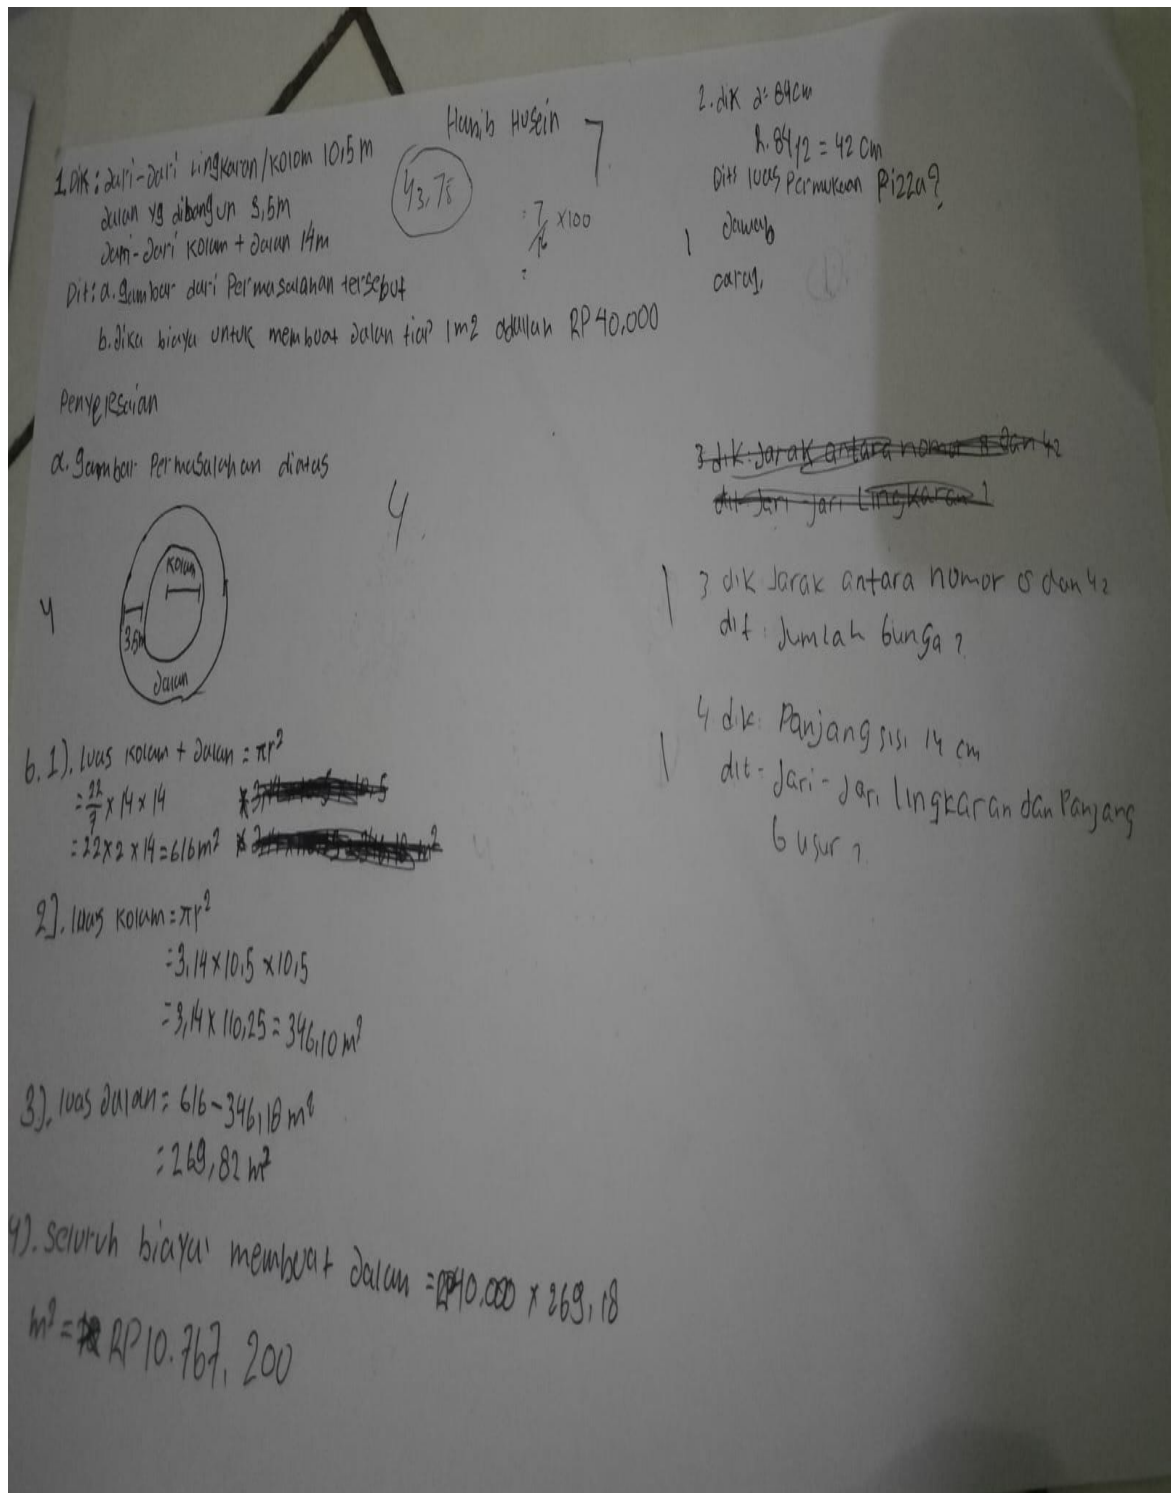 Hanib Husein
7
43,75
= 7/16 x100
=
1. Dik : Jari-Jari Lingkaran/kolam 10,5 m
Jalan yg dibangun 3,5m
Jari-Jari kolam + Jalan 14m
Dit : a. gambar dari Permasalahan tersebut
b. Jika biaya untuk membuat Jalan tiap 1m2 adallah RP 40.000
Penyelesaian
a. gambar Permasalahan diatas
4
4
kolam
3,5m
Jalan
b. 1). luas kolam + Jalan = πr²
= 22/7 x 14 x 14
= 22x2 x 14 = 616 m²
2]. luas kolam = πr²
= 3,14 x 10,5 x 10,5
= 3,14 x 110,25 = 346,10 m²
3). luas Jalan = 616 - 346,18 m²
= 269,82 m²
4). Seluruh biaya membuat Jalan = RP40.000 x 269,18
m² = RP 10.767.200
2. dik d = 84cm
R. 84/2 = 42 cm
Dits luas Permukaan Pizza?
1
Jawab
cara1.
3 dik. Jarak antara nomor 8 dan 42
dit Jari - jari Lingkaran ?
1
3 dik Jarak antara nomor 8 dan 42
dit : Jumlah bunga ?
1
4 dik. Panjang sisi 14 cm
dit - Jari - Jari lingkaran dan Panjang
busur ?